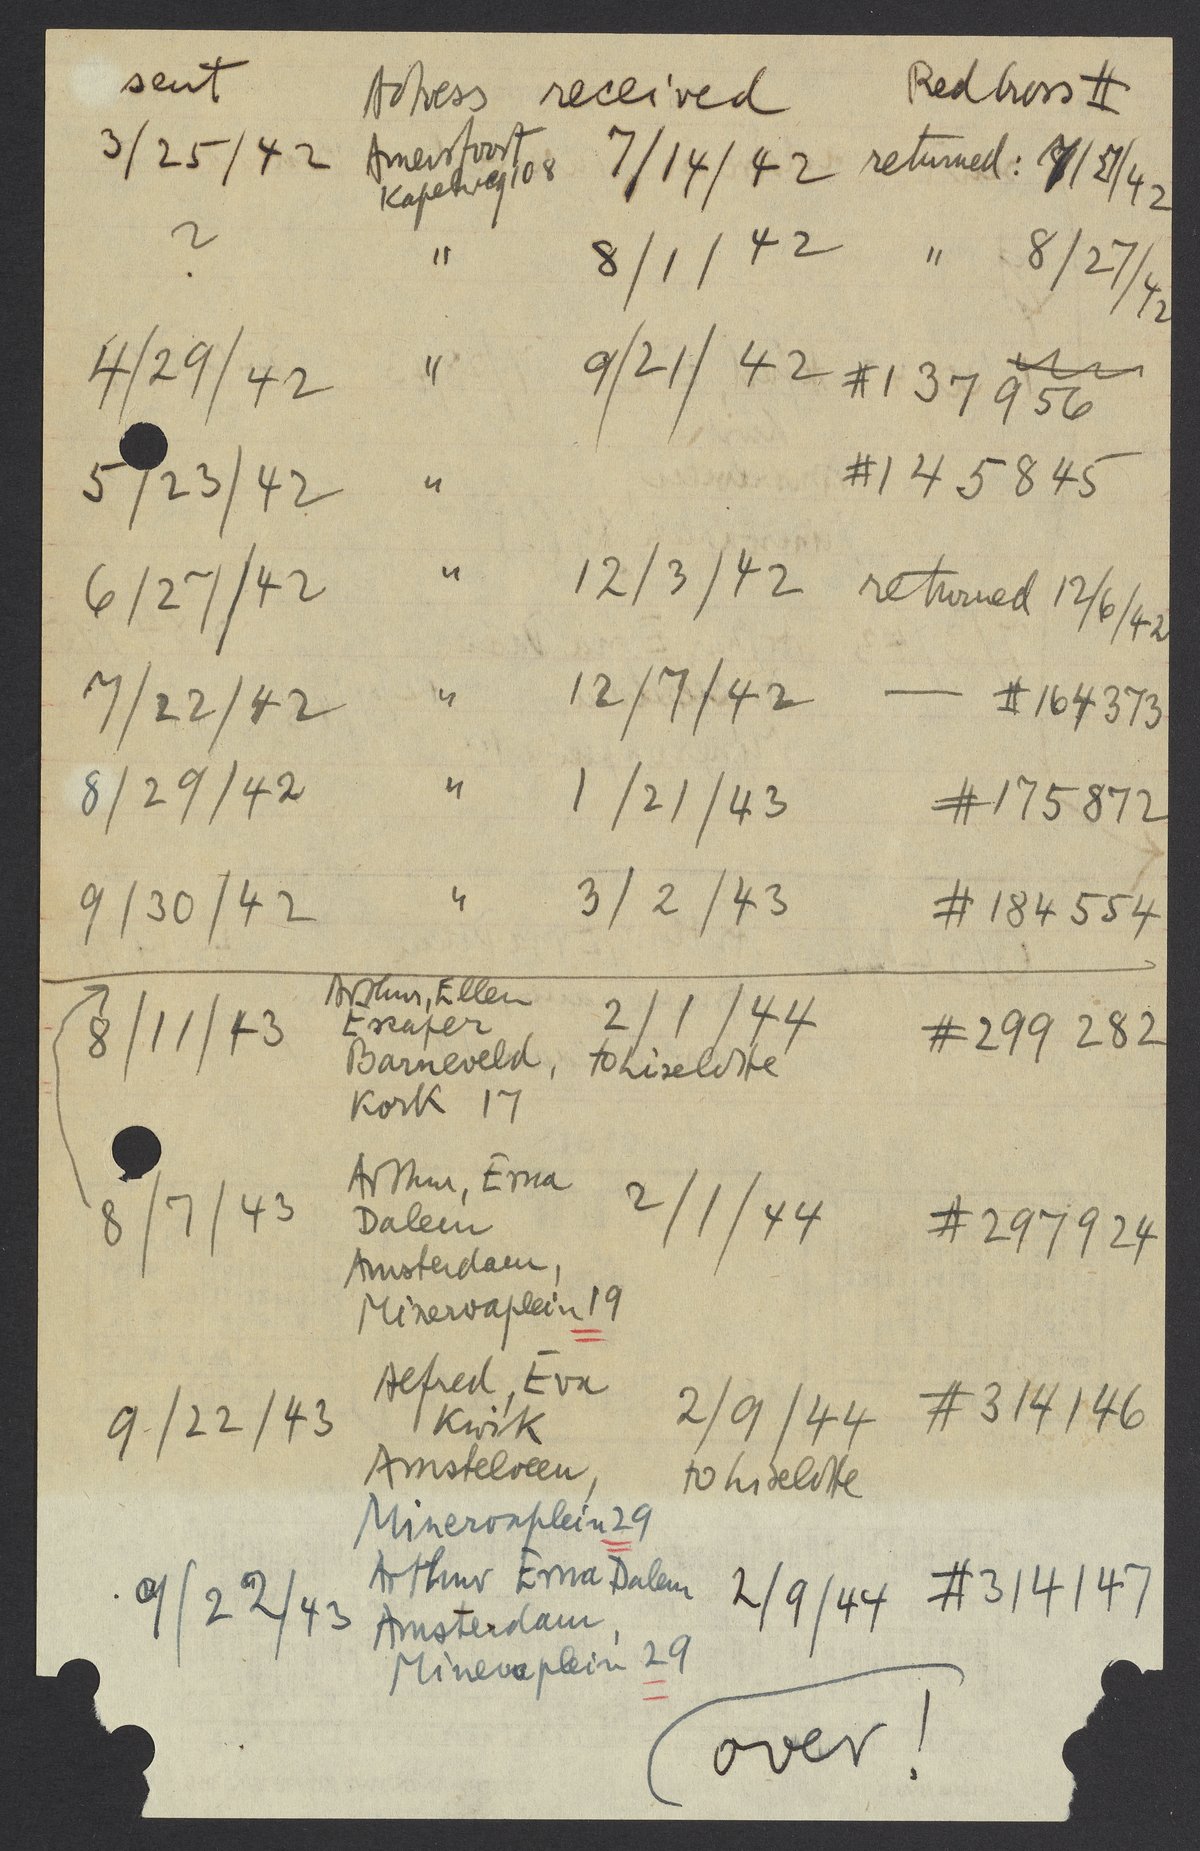 sent Adress received Red Cross II
3/25/42 Amersfoort 7/14/42 returned: 7/42
Kapelweg 108
? " 8/1/42 " 8/27/42
4/29/42 " 9/21/42 #137956
5/23/42 " #145845
6/27/42 " 12/3/42 returned 12/6/42
7/22/42 " 12/7/42 — #164373
8/29/42 " 1/21/43 #175872
9/30/42 " 3/2/43 #184554
Arthur, Ellen
8/11/43 2/1/44 #299282
Barneveld, to Liselotte
Kork 17
Arthur, Erna
8/7/43 Dalem 2/1/44 #297924
Amsterdam,
Minervaplein 19
Alfred, Eva
9/22/43 Kwik 2/9/44 #314146
Amstelveen, to Liselotte
Minervaplein 29
9/22/43 Arthur Erna Dalem 2/9/44 #314147
Amsterdam,
Minervaplein 29
over!